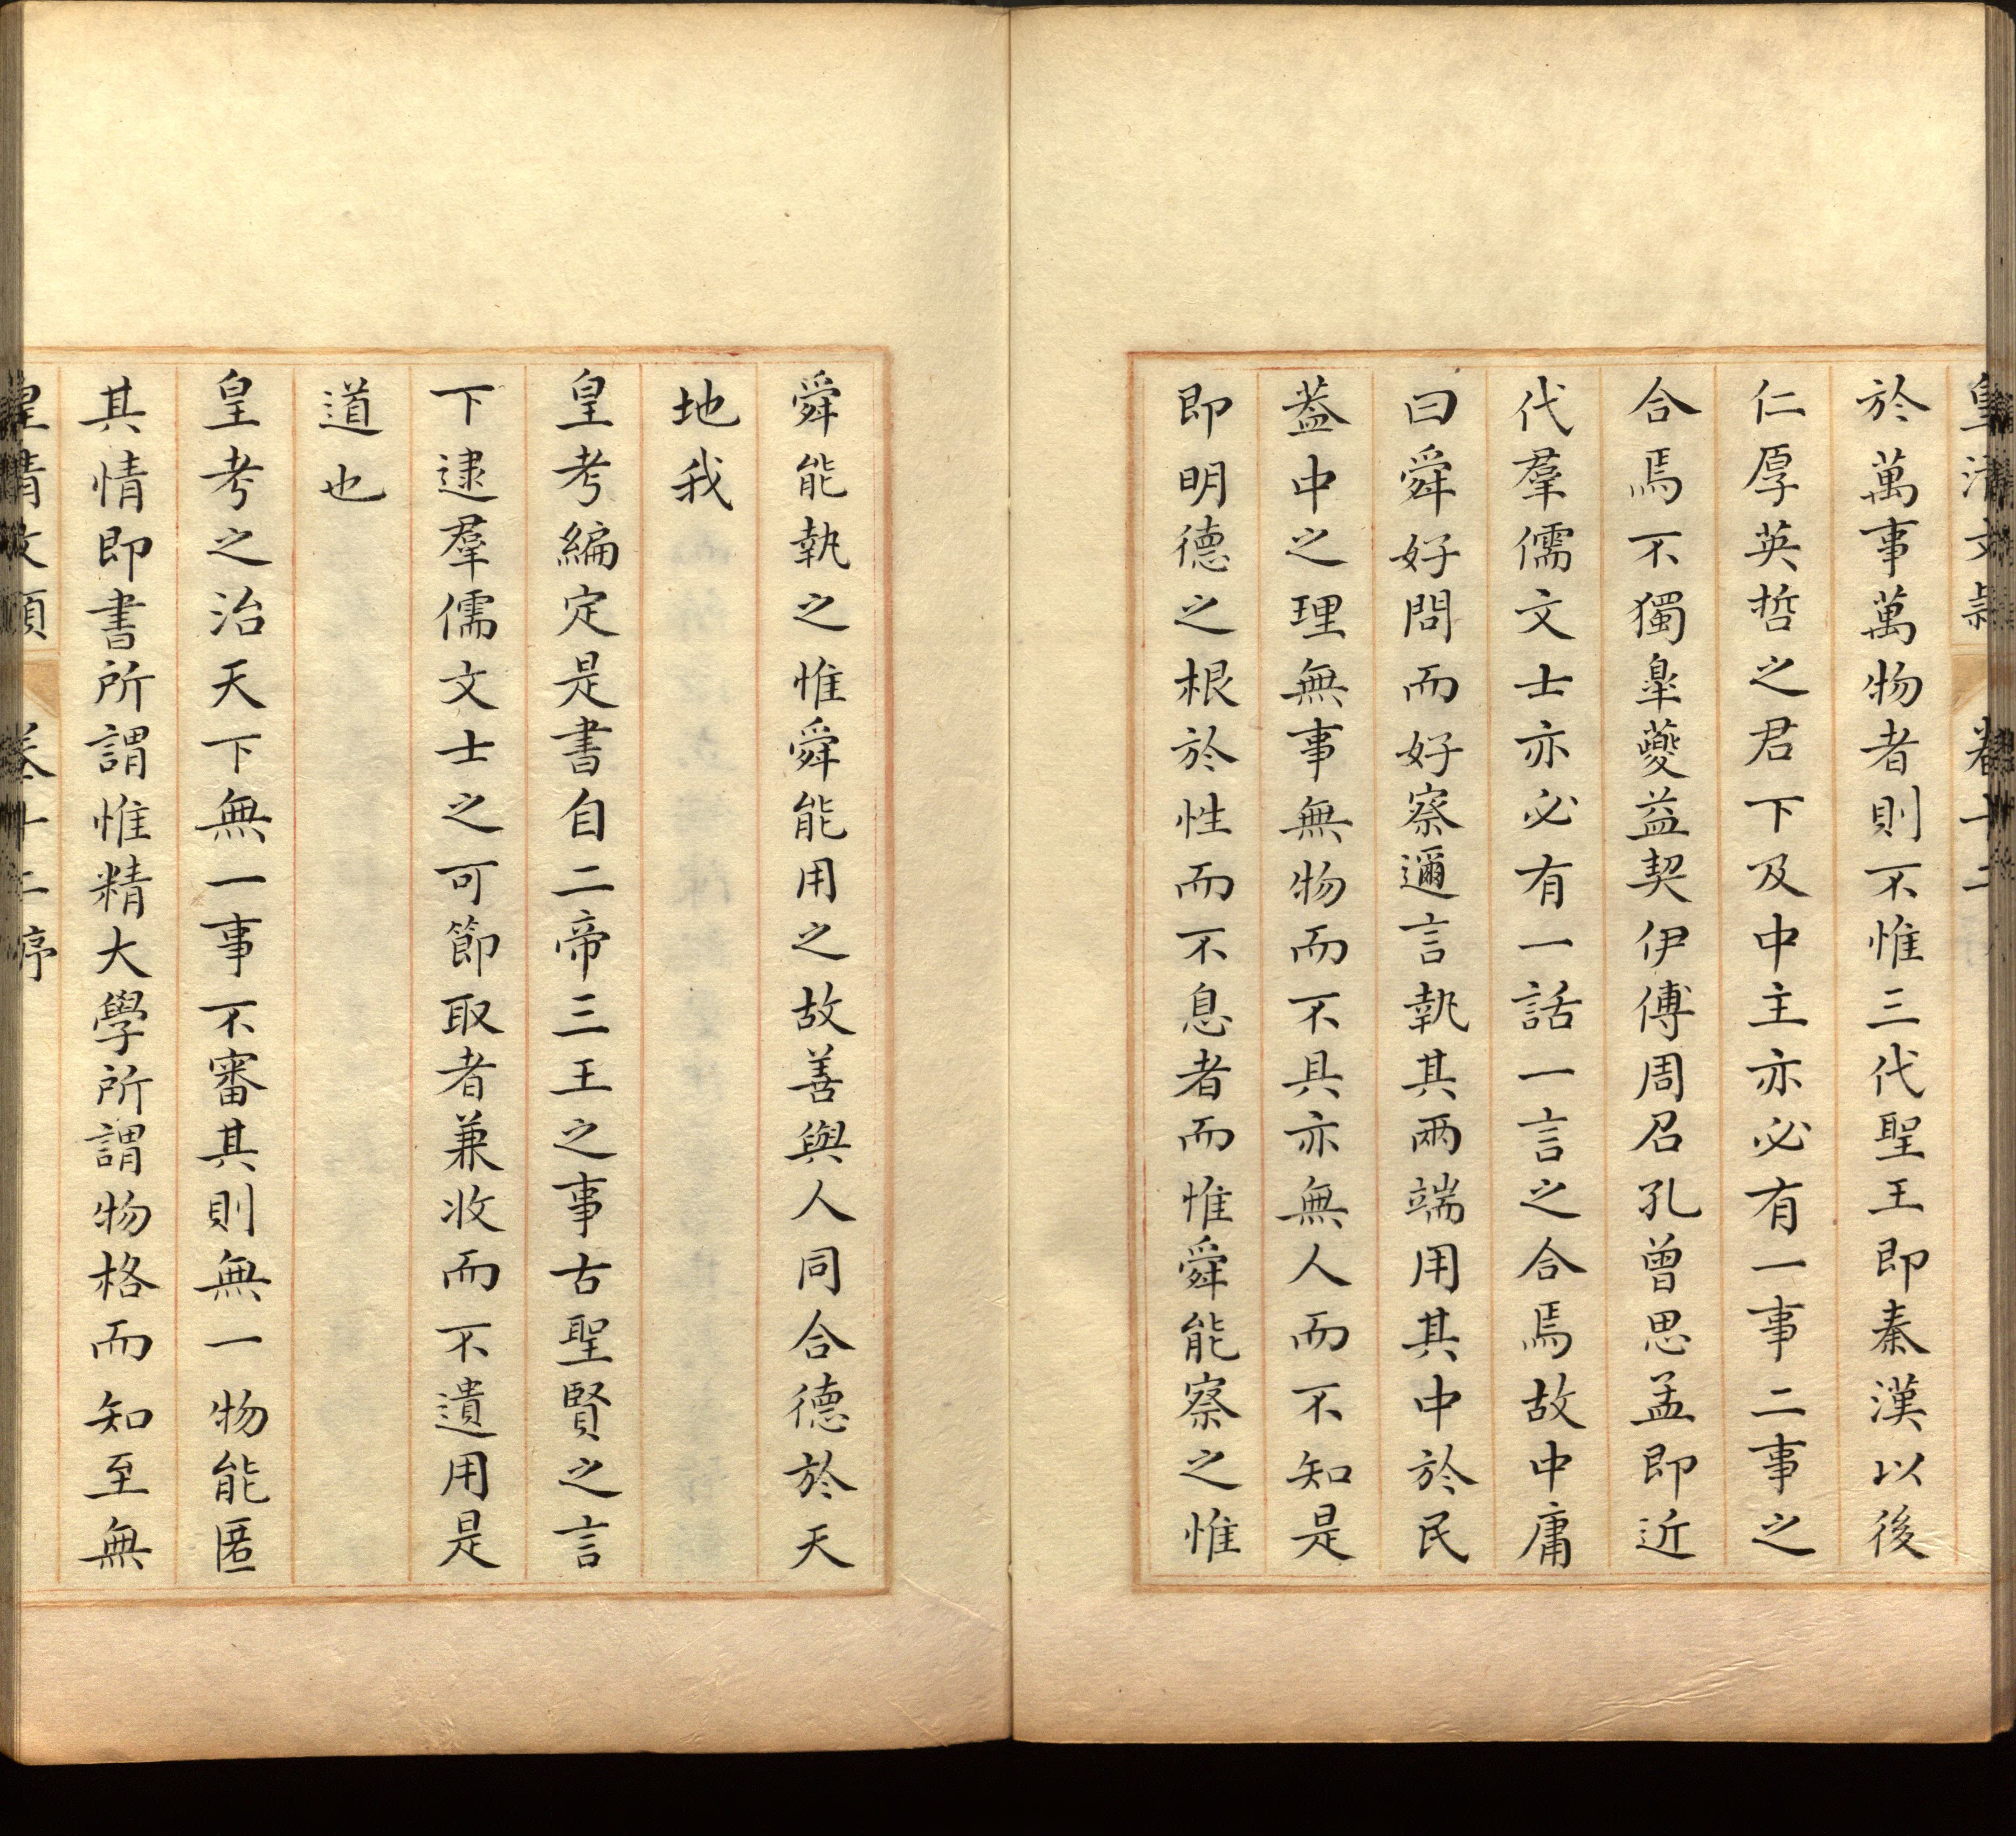 皇清文穎 卷十二
於萬事萬物者則不惟三代聖王即秦漢以後
仁厚英哲之君下及中主亦必有一事二事之
合焉不獨臯夔益契伊傅周召孔曾思孟即近
代羣儒文士亦必有一話一言之合焉故中庸
曰舜好問而好察邇言執其兩端用其中於民
葢中之理無事無物而不具亦無人而不知是
即明德之根於性而不息者而惟舜能察之惟
舜能執之惟舜能用之故善與人同合德於天
地我
皇考編定是書自二帝三王之事古聖賢之言
下逮羣儒文士之可節取者兼收而不遺用是
道也
皇考之治天下無一事不審其則無一物能匿
其情即書所謂惟精大學所謂物格而知至無
皇清文穎 卷十二序